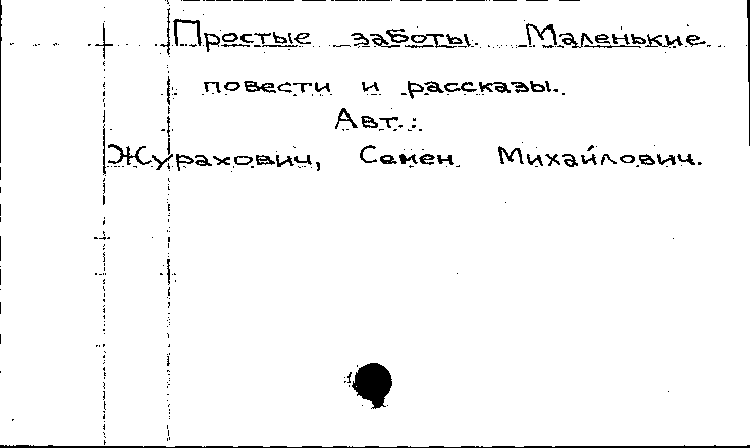 Простые заботы. Маленькие
повести и рассказы.
Авт.:
Журахович, Семен Михайлович.